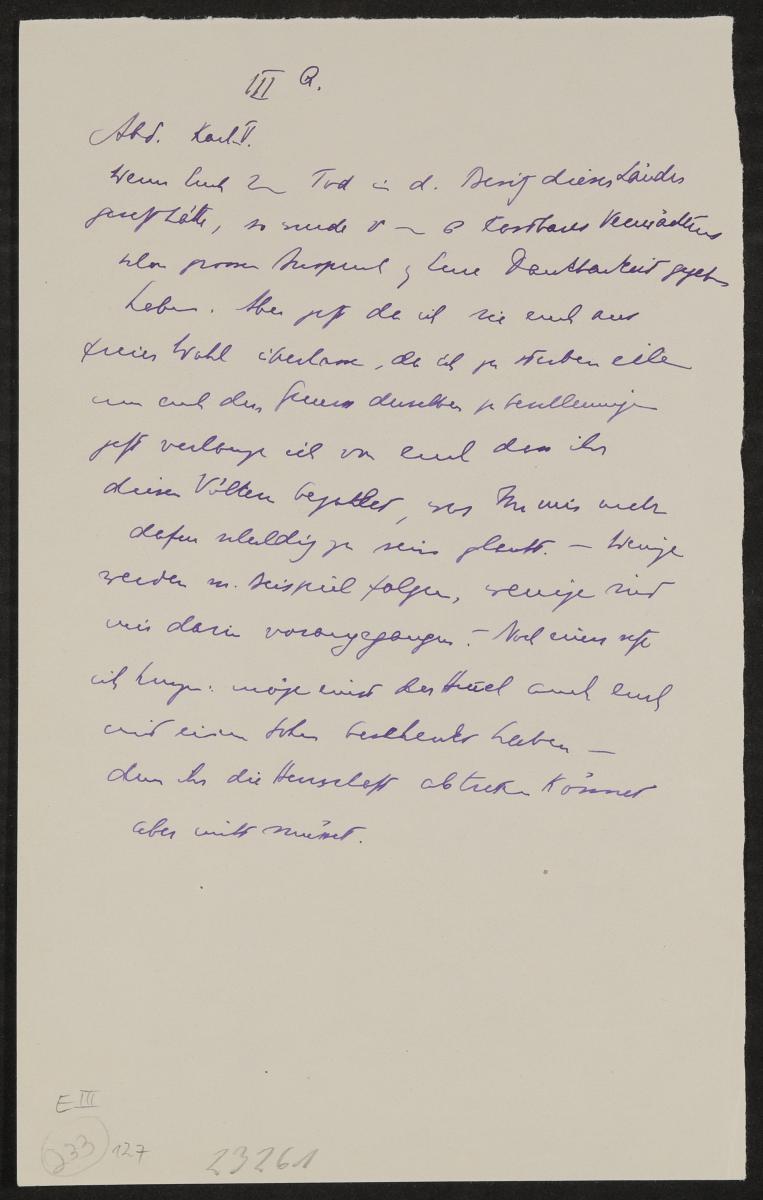 III Q.
Abd. Karl V.
Wenn Euch Tod in d. Besitz dieses Landes
gesetzt hätte, so wurde kostbares Vermächtnis
schon grossen Anspruch Eure Dankbarkeit gegeben
haben. Aber jetzt da ich sie euch aus
freier Wahl überlasse, da ich zu sterben eile
um euch den Genuss derselben zu beschleunigen
jetzt verlange ich von euch dass ihr
diesen Völkern bezahlet, was Ihr mir mehr
dafür schuldig zu sein glaubt. – Wenige
werden m. Beispiel folgen, wenige sind
mir darin vorangegangen. – Noch eines setze
ich hinzu: möge einst der Himmel auch Euch
mit einem Sohn beschenkt haben –
dem ihr die Herrschaft abtreten könnet
aber nicht müsset.
E III
233 127
23261